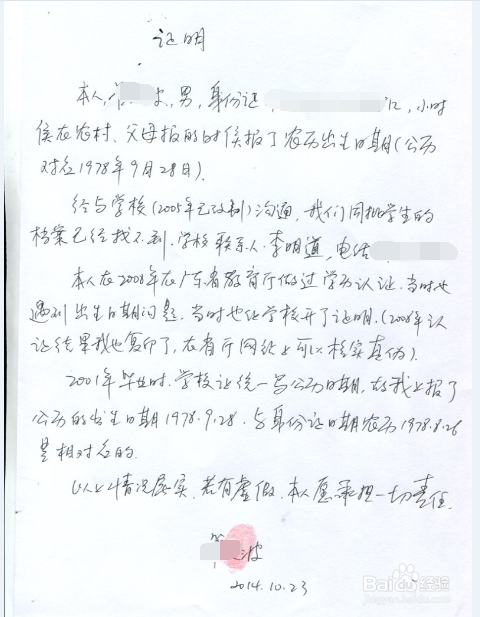 证明
本人 男，身份证 12，小时
侯在农村、父母报的时侯报了农历出生日期(公历
对应1978年9月28日).
经与学校(2005年已改制)沟通，我们同批学生的
档案已经找不到.学校联系人.李明道，电话
本人在2008年在广东省教育厅做过学历认证.当时也
遇到出生日期问题.当时也让学校开了证明.(2008年认
证结果我也复印了，在省厅网站上可以核实真伪).
2001年毕业时.学校让统一写公历日期.故我上报了
公历的出生日期1978.9.28.与身份证日期农历1978.8.26
是相对应的.
以上情况属实.若有虚假.本人愿承担一切责任.
波
2014.10.23
Baidu经验
jingyan.baidu.com